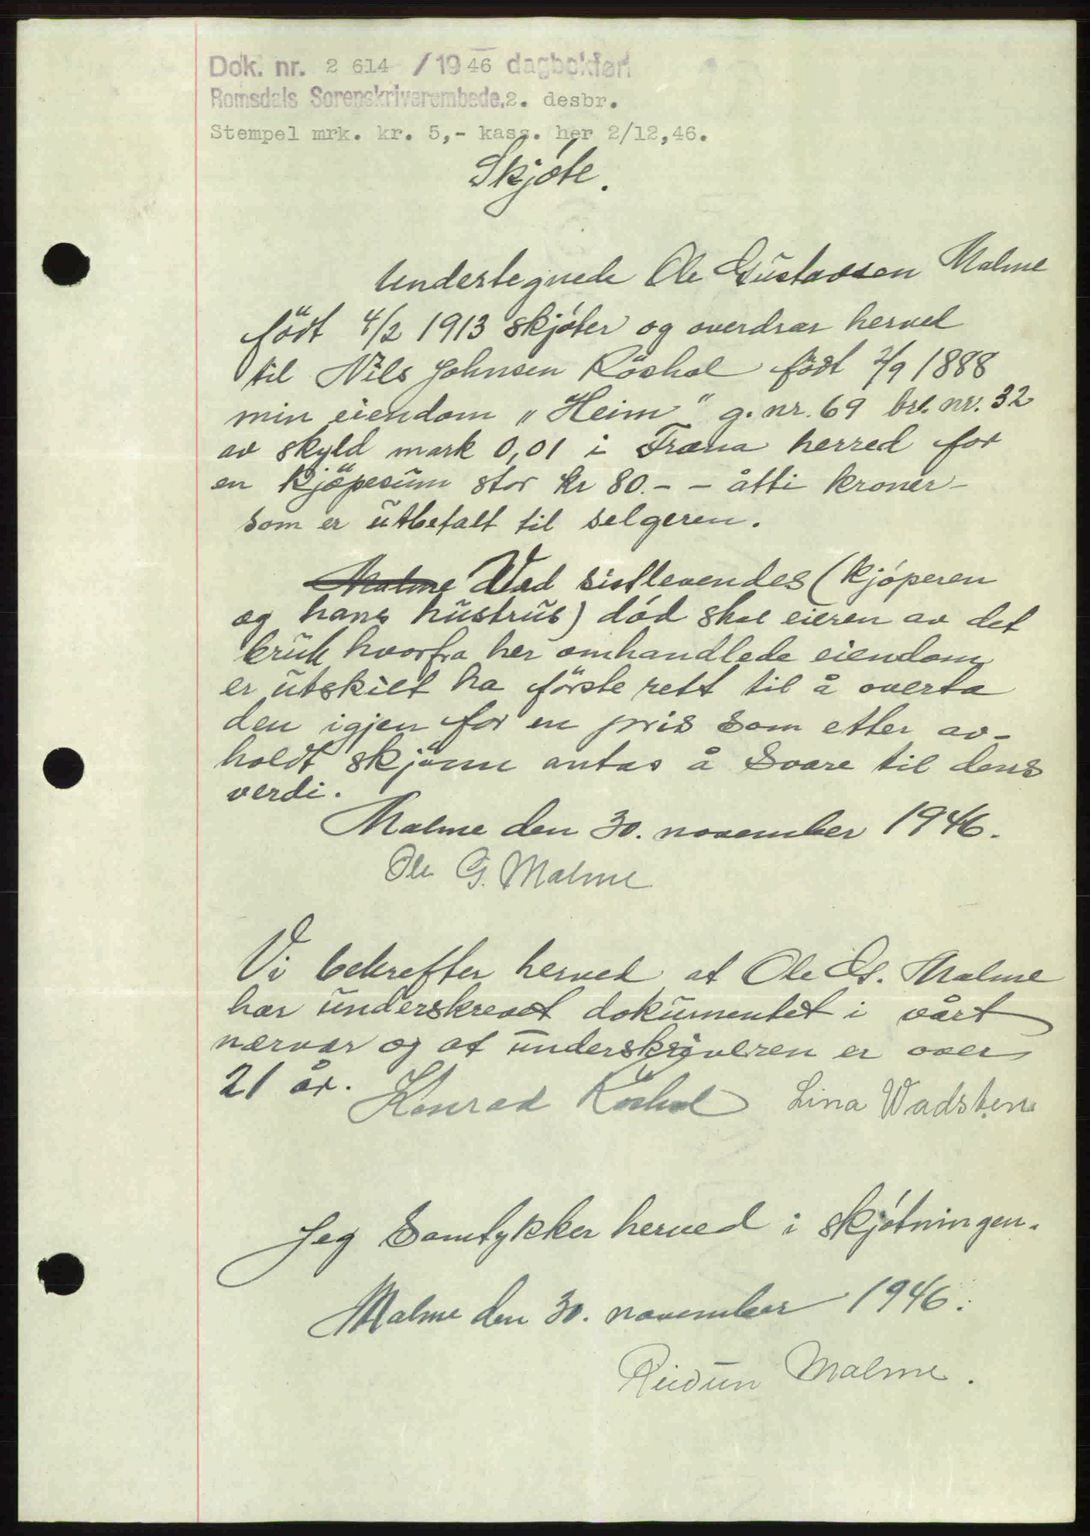 Dok. nr. 2 614 / 19 46 dagbokført
Romsdals Sorenskriverembede, 2. desbr.
Stempel mrk. kr. 5,- kass. her 2/12,46.
Skjøte.
Undertegnede Ole Gustavsen Malme
født 4/2 1913 skjøter og overdrar herved
til Nils Johnsen Röshol født 2/9 1888
min eiendom „Heim" g. nr. 69 br. nr. 32
av skyld mark 0,01 i Fræna herred for
en kjöpesum stor kr 80.- - åtti kroner -
som er utbetalt til selgeren.
Malme Ved sistlevendes (kjøperen
og hans hustrus) død skal eieren av det
bruk hvorfra her omhandlede eiendom
er utskilt ha förste rett til å overta
den igjen for en pris som etter av-
holdt skjönn antas å svare til dens
verdi.
Malme den 30. november 1946.
Ole G. Malme
Vi bekrefter herved at Ole G. Malme
har underskrevet dokumentet i vårt
nærvær og at underskriveren er over
21 år. Konrad Röshol Lina Wadsten
Jeg Samtykker herved i skjøtningen.
Malme den 30. november 1946.
Reidun Malme.